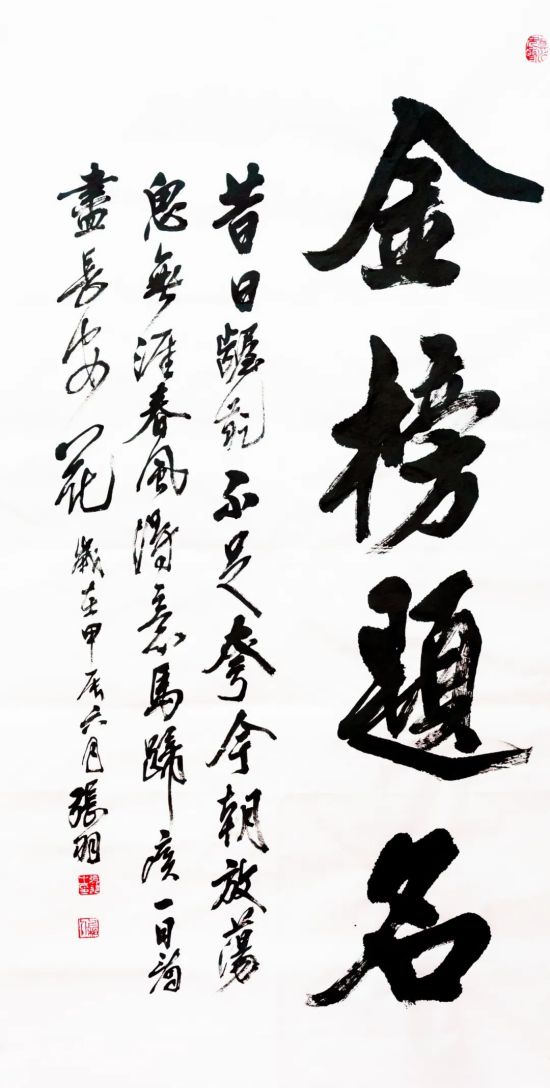 金榜題名
昔日齷齪不足夸今朝放蕩
思無涯春風得意馬蹄疾一日看
盡長安花 歲在甲辰六月 張羽